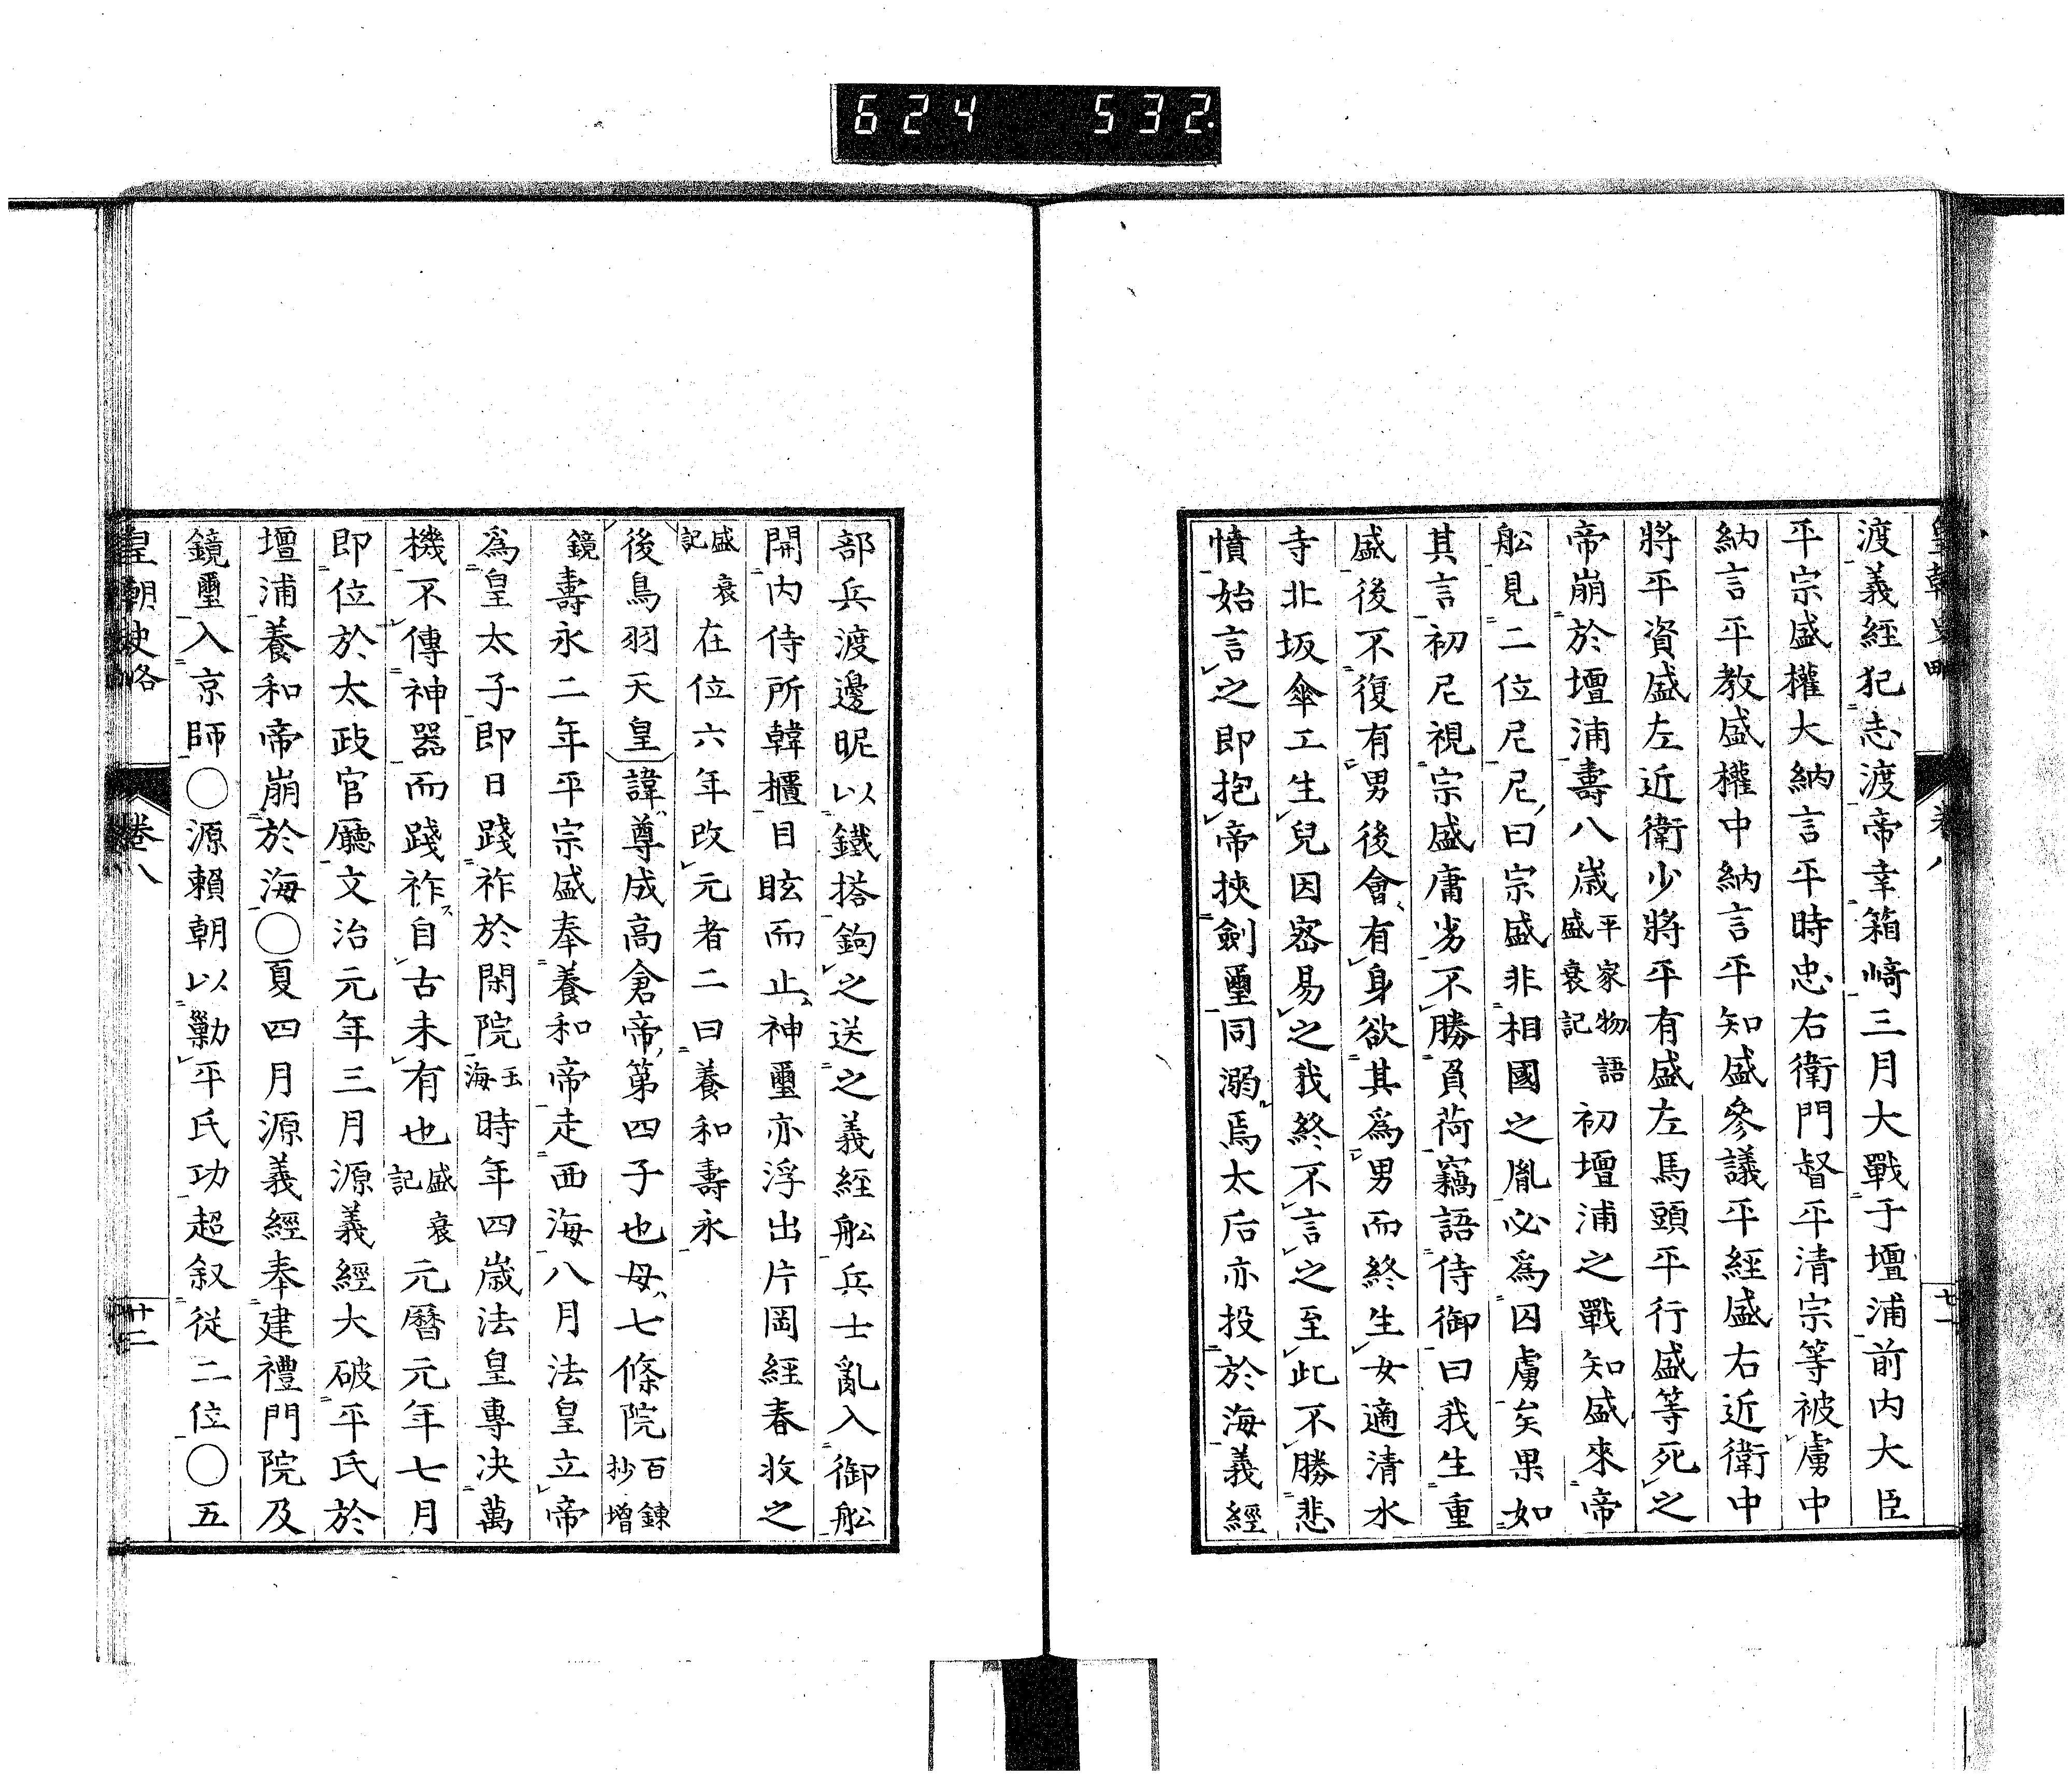 624 532
皇朝史略 卷八
渡義經犯志渡帝幸箱崎三月大戰于壇浦前內大臣
平宗盛權大納言平時忠右衛門督平清宗等被虜中
納言平教盛權中納言平知盛參議平經盛右近衛中
將平資盛左近衛少將平有盛左馬頭平行盛等死之
帝崩於壇浦壽八歲平家物語盛衰記初壇浦之戰知盛來帝
舩見二位尼尼曰宗盛非相國之胤必爲囚虜矣果如
其言初尼視宗盛庸劣不勝負荷竊語侍御曰我生重
盛後不復有男後會有身欲其爲男而終生女適清水
寺北坂傘工生兒因密易之我終不言之至此不勝悲
憤始言之即抱帝挾劍璽同溺焉太后亦投於海義經
部兵渡邊昵以鐵搭鉤之送之義經舩兵士亂入御舩
開內侍所韓櫃目眩而止神璽亦浮出片岡經春收之
盛衰記在位六年改元者二曰養和壽永
後鳥羽天皇諱尊成高倉帝第四子也母七條院百鍊抄增
鏡壽永二年平宗盛奉養和帝走西海八月法皇立帝
爲皇太子即日踐祚於閑院玉海時年四歲法皇專决萬
機不傳神器而踐祚自古未有也盛衰記元曆元年七月
即位於太政官廳文治元年三月源義經大破平氏於
壇浦養和帝崩於海〇夏四月源義經奉建禮門院及
鏡璽入京師〇源賴朝以勦平氏功超叙從二位〇五
皇朝史略 卷八 廿二